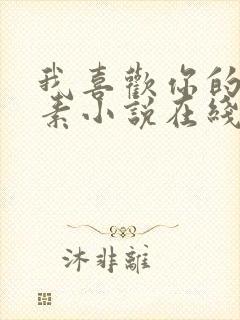 我喜歡你的
素小說在綫
沐非離